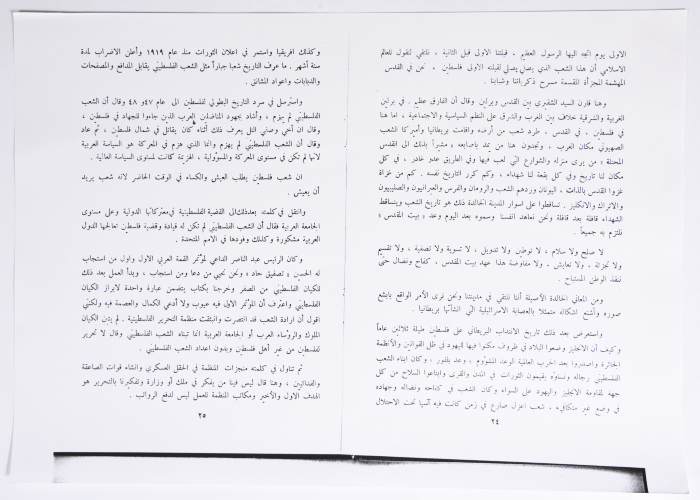 الاولى يوم اتجه اليها الرسول العظيم ، قبلتنا الاولى قبل الثانية ، نلتقي لنقول للعالم
الاسلامي أن هذا الشعب الذي يصلي يصلي لقبلته الاولى فلسطين . نحن في القدس
المهشمة المجزأة المقسمة مسرح ذكرياتنا وشبابنا .
وهنا قارن السيد الشقيري بين القدس وبرلين وقال أن الفارق عظيم . في برلين
الغربية والشرقية خلاف بين الغرب والشرق على النظم السياسية والاجتماعية ، اما هنا
في فلسطين ، في القدس ، طرد شعب من أرضه واقامت بريطانيا وأميركا الشعب
الصهيوني مكان العرب . وتجدون هنا من يمد باصابعه ، مشيراً بذلك الى القدس
المحتلة ، من يرى منزله والشوارع التي لعب فيها وفي الطريق عدو غادر ، في كل
مكان لنا تاريخ وفي كل بقعة لنا شهداء ، وكم كرر التاريخ نفسه . كم من غزاة
غزوا القدس بالذات ، اليونان وردهم الشعب والرومان والفرس والعبرانيون والصليبيون
والاتراك والانكليز . تساقطوا على اسوار المدينة الخالدة ذلك هو تاريخ الشعب ويتساقط
الشهداء قافلة بعد قافلة ونحن نعاهد انفسنا وسموه بعد اليوم وعد « بيت المقدس »
فلنلتزم به جميعاً .
لا صلح ولا سلام ، لا توطين ولا تدويل ، لا تسوية ولا تصفية ، ولا تقسيم
ولا تجزئة ، ولا تعايش ، ولا مفاوضة هذا عهد بيت المقدس ، كفاح ونضال حتى
ننقذ الوطن المستباح .
ومن المعاني الخالدة الأصيلة أننا نلتقي في مدينتنا ونحن نرى الأمر الواقع بابشع
صوره وأشنع اشكاله متمثلا بالعصابة الاسرائيلية التي انشأتها بريطانيا .
واستعرض بعد ذلك تاريخ الانتداب البريطاني على فلسطين طيلة ثلاثين عاماً
وكيف أن الانجليز وضعوا البلاد في ظروف مكنوا فيها لليهود في ظل القوانين والانظمة
الجائرة واصدروا بعد الحرب العالمية الوعد المشؤوم ، وعد بلفور ، وكان ابناء الشعب
الفلسطيني رجاله ونساؤه يقيمون الثورات في المدن والقرى وابتاعوا السلاح من كل
جهة لمقاومة الانجليز واليهود على السواء وكان الشعب في كفاحه ونضاله وجهاده
في وضع غير متكافىء ، شعب اعزل صارع في زمن كانت فيه آسيا تحت الاحتلال
٢٤
وكذلك افريقيا واستمر في اعلان الثورات منذ عام ١٩١٩ وأعلن الاضراب لمدة
ستة أشهر . ما عرف التاريخ شعبا جباراً مثل الشعب الفلسطيني يقابل المدافع والمصفحات
والدبابات واعواد المشانق .
واسترسل في سرد التاريخ البطولي لفلسطين الى عام ٤٧ و ٤٨ وقال أن الشعب
الفلسطيني لم يهزم ، وأشاد بجهود المناضلين العرب الذين جاءوا للجهاد في فلسطين ،
وقال ان أخي وصفي التل يعرف ذلك أثناء كان يقاتل في شمال فلسطين ، ثم عاد
وقال أن الشعب الفلسطيني لم يهزم وانما الذي هزم في المعركة هو السياسة العربية
لانها لم تكن في مستوى المعركة والمسؤولية ، الهزيمة كانت لمستوى السياسة العالية .
ان شعب فلسطين يطلب العيش والكساء في الوقت الحاضر لانه شعب يريد
أن يعيش .
وانتقل في كلمته بعد ذلك الى القضية الفلسطينية في معتركاتها الدولية وعلى مستوى
الجامعة العربية فقال أن الشعب الفلسطيني لم تكن له قيادة وقضية فلسطين تعالجها الدول
العربية مشكورة وكذلك وفودها في الامم المتحدة .
وكان الرئيس عبد الناصر الداعي لمؤتمر القمة العربي الاول واول من استجاب
له الحسين « تصفيق حاد » ونحن نحيي من دعا ومن استجاب ، وبدأ العمل بعد ذلك
للكيان الفلسطيني من الصفر وخرجنا بكتاب يتضمن عبارة واحدة لابراز الكيان
الفلسطيني واعترف أن المؤتمر الاول فيه عيوب ولا أدعي الكمال والعصمة فيه ولكني
اقول ان ارادة الشعب قد انتصرت وانبثقت منظمة التحرير الفلسطينية . لم يتبن الكيان
الملوك والرؤساء العرب أو الجامعة العربية انما تبناه الشعب الفلسطيني وقال لا تحرير
لفلسطين من غير أهل فلسطين وبدون اعداد الشعب الفلسطيني .
ثم تناول في كلمته منجزات المنظمة في الحقل العسكري وانشاء قوات الصاعقة
والفدائيين ، وهنا قال ليس فينا من يفكر في ملك أو وزارة وتفكيرنا بالتحرير هو
الهدف الاول والأخير ومكاتب المنظمة للعمل ليس لدفع الرواتب .
٢٥